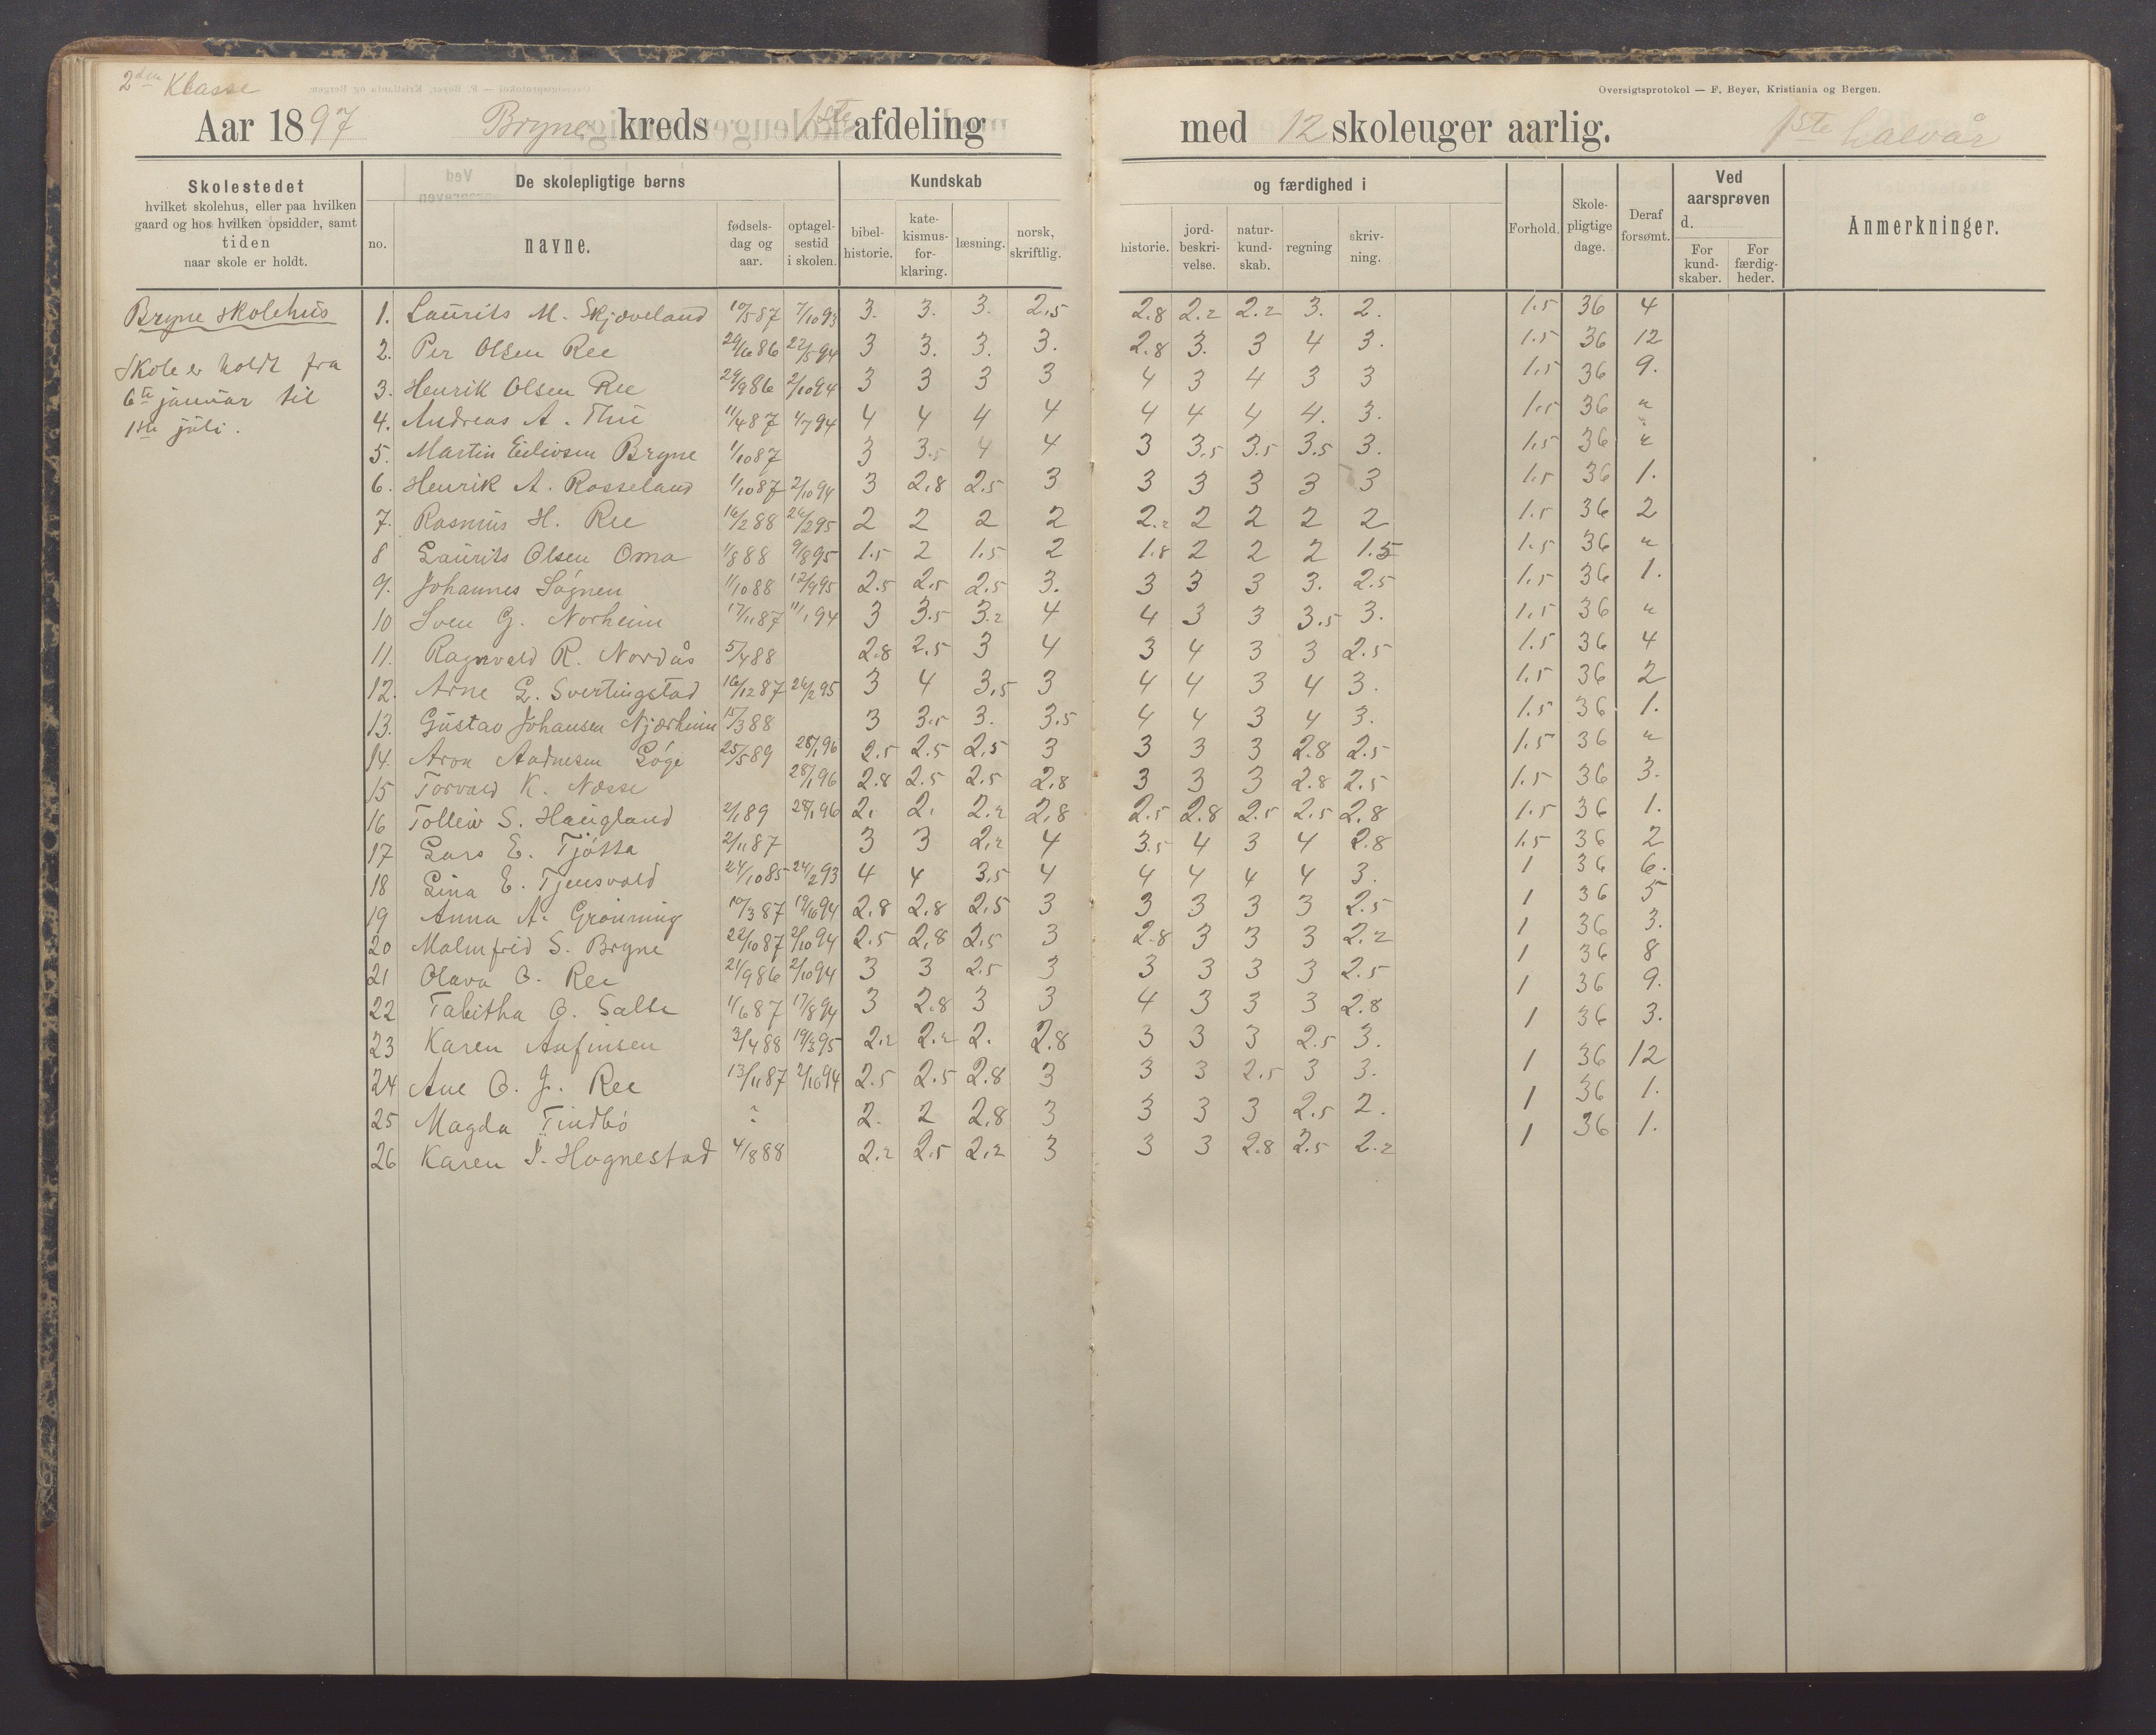 2den Klasse
Oversigtsprotokol — F. Beyer, Kristiania og Bergen.
Aar 1897 Bryne kreds 1ste afdeling med 12 skoleuger aarlig. 1ste halvår
Skolestedet
hvilket skolehus, eller paa hvilken
gaard og hos hvilken opsidder, samt
tiden
naar skole er holdt.
De skolepligtige børns
no.
navne.
fødsels-
dag og
aar.
optagel-
sestid
i skolen.
Kundskab og færdighed i
bibel-
historie.
kate-
kismus-
for-
klaring.
læsning.
norsk,
skriftlig.
historie.
jord-
beskri-
velse.
natur-
kund-
skab.
regning
skriv-
ning.
Forhold.
Skole-
pligtige
dage.
Deraf
forsømt.
Ved
aarsprøven
d.
For
kund-
skaber.
For
færdig-
heder.
Anmerkninger.
Bryne skolehus
Skole er holdt fra
6te januar til
1ste juli.
1. Laurits M. Skjæveland 10/5 87 7/10 93 3. 3. 3. 2,5 2.8 2.2 2.2 3. 2. 1.5 36 4
2. Per Olsen Ree 29/6 86 22/5 94 3 3. 3. 3. 2.8 3. 3 4 3. 1.5 36 12
3. Henrik Olsen Ree 29/9 86 2/10 94 3 3 3 3 4 3 4 3 3 1.5 36 9.
4. Andreas A. Thu 11/4 87 4/7 94 4 4 4 4 4 4 4 4. 3. 1.5 36 "
5. Martin Eilivsen Bryne 1/10 87 3 3.5 4 4 3 3.5 3.5 3.5 3. 1.5 36 "
6. Henrik A. Rosseland 1/10 87 2/10 94 3 2.8 2.5 3 3 3 3 3 3 1.5 36 1.
7. Rasmus H. Ree 16/2 88 26/2 95 2 2 2 2 2.2 2 2 2 2 1.5 36 2
8 Laurits Olsen Oma 1/8 88 9/8 95 1.5 2 1.5 2 1.8 2 2 2 1.5 1.5 36 "
9. Johannes Søgnen 1/10 88 12/9 95 2.5 2.5 2.5 3. 3 3 3 3. 2.5 1.5 36 1.
10 Sven G. Norheim 17/11 87 11/1 94 3 3.5 3.2 4 4 3 3 3.5 3. 1.5 36 "
11. Ragnvald R. Nordås 5/4 88 2.8 2.5 3 4 3 4 3 3 2.5 1.5 36 4
12. Arne L. Svertingstad 16/12 87 26/2 95 3 4 3,5 3 4 4 3 4 3. 1.5 36 2
13. Gustav Johansen Njærheim 15/3 88 3 3.5 3. 3.5 4 4 3 4 3. 1.5 36 1.
14. Aron Aadnesen Løge 25/5 89 28/1 96 2.5 2.5 2,5 3 3 3 3 2.8 2.5 1.5 36 "
15 Torvald K. Næsse 28/1 96 2.8 2.5 2.5 2,8 3 3 3 2.8 2.5 1.5 36 3.
16 Tolleiv S. Haugland 2/1 89 28/1 96 2. 2. 2.2 2,8 2.5 2.8 2.5 2.5 2,8 1.5 36 1.
17 Lars E. Tjøtta 2/11 87 3 3 2,2 4 3.5 4 3 4 2.8 1.5 36 2
18 Lina E. Tjensvold 24/10 85 24/2 93 4 4 3,5 4 4 4 4 4 3. 1 36 6.
19 Anna A. Grønning 10/3 87 19/6 94 2,8 2,8 2,5 3 3 3 3 3 2.5 1 36 5
20 Malmfrid S. Bryne 22/10 87 2/10 94 2.5 2,8 2,5 3 2.8 3 3 3 2.2 1 36 3.
21 Olava O. Ree 21/9 86 2/10 94 3 3 2.5 3 3 3 3 3 2.5 1 36 8
22 Tabitha O. Salte 1/6 87 17/8 94 3 2.8 3 3 4 3 3 3 2.8 1 36 9.
23 Karen Aafinsen 3/4 88 19/3 95 2.2 2.2 2. 2.8 3 3 3 2.5 3. 1 36 3.
24 Ane O. J. Ree 13/11 87 2/10 94 2.5 2.5 2.8 3 3 3 2.5 3 3. 1 36 12
25 Magda Tindbø 2. 2 2,8 3 3 3 3 2.5 2. 1 36 1.
26 Karen J. Hognestad 4/8 88 2.2 2.5 2,2 3 3 3 2.8 2.5 2.2 1 36 1.